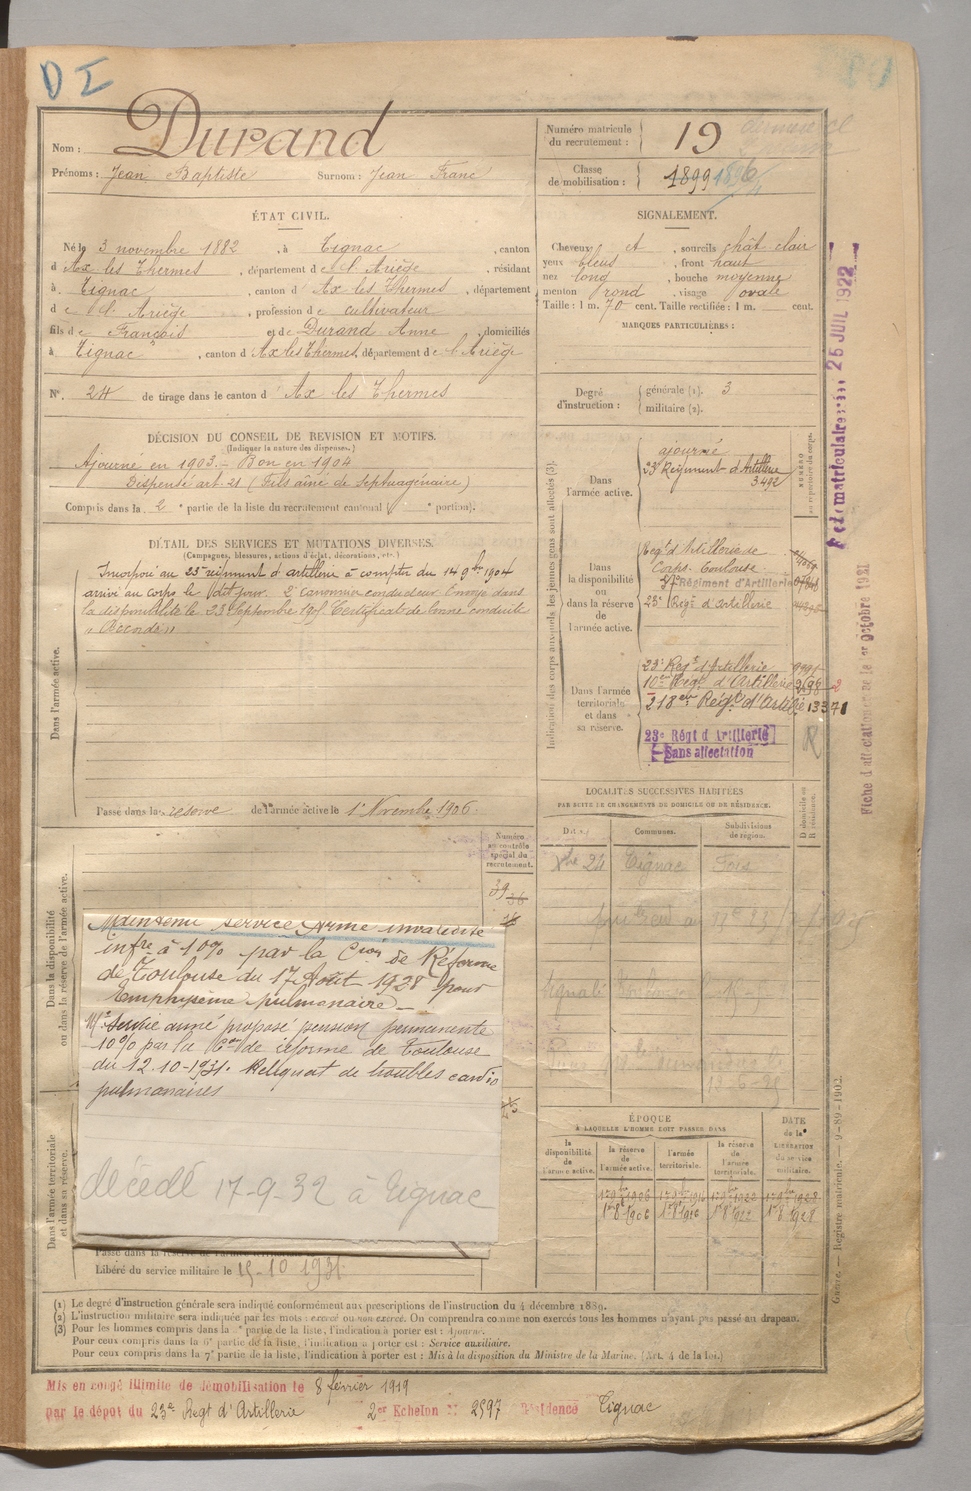 D I
Nom : Durand
Prénoms : Jean Baptiste Surnom : Jean Franc
Numéro matricule du recrutement : 19
Classe de mobilisation : 1899 1896
ÉTAT CIVIL.
Né le 3 novembre 1882, à Tignac, canton
d'Ax les Thermes, département de l'Ariège, résidant
à Tignac, canton d'Ax les Thermes, département
de l'Ariège, profession de cultivateur
fils de François et de Durand Anne, domiciliés
à Tignac, canton d'Ax les Thermes, département de l'Ariège
N°. 24 de tirage dans le canton d'Ax les Thermes
SIGNALEMENT.
Cheveux et, sourcils chât clair
yeux bleus, front haut
nez long, bouche moyenne
menton rond, visage ovale
Taille : 1 m. 70 cent. Taille rectifiée : 1 m. cent.
MARQUES PARTICULIÈRES :
Degré d'instruction : générale (1). 3
militaire (2).
DÉCISION DU CONSEIL DE REVISION ET MOTIFS.
(Indiquer la nature des dispenses.)
Ajourné en 1903. – Bon en 1904
Dispensé art 21 (Fils aîné de Septuagénaire)
Compris dans la 2e partie de la liste du recrutement cantonal ( e portion).
DÉTAIL DES SERVICES ET MUTATIONS DIVERSES.
(Campagnes, blessures, actions d'éclat, décorations, etc.)
Dans l'armée active.
Incorporé au 23e régiment d'artillerie à compter du 14 9bre 1904
arrivé au corps le dit jour. 2e canonnier conducteur Envoyé dans
la disponibilité le 23 Septembre 1905 Certificat de bonne conduite
"Accordé"
Passé dans la réserve de l'armée active le 1er Novembre 1906.
Indication des corps auxquels les jeunes gens sont affectés (3).
NUMÉRO au répertoire du corps.
Dans l'armée active.
ajourné
23e Régiment d'Artillerie
3492
Dans la disponibilité ou dans la réserve de l'armée active.
Regt d'Artillerie de
Corps. Toulouse
Régiment d'Artillerie
23e Regt d'artillerie
Dans l'armée territoriale et dans sa réserve.
23e Regt d'Artillerie 9991
10e Regt d'Artillerie
218e Regt d'Artillie 13371
23e Régt d'Artillerie
Sans affectation
R
Fiche d'affectation le 1er octobre 1921
25 JUIL 1922
LOCALITÉS SUCCESSIVES HABITÉES
PAR SUITE DE CHANGEMENTS DE DOMICILE OU DE RÉSIDENCE.
Communes.
Subdivisions de région.
D domicile ou R résidence.
Xbre 24 Tignac Foix
Dans la disponibilité ou dans la réserve de l'armée active.
Numéro au contrôle spécial du recrutement.
39
Maintenu service Armé invalidité
infre à 10% par la Cion de Réforme
de Toulouse du 17 Août 1928 pour
Emphysème pulmonaire –
Mt Service armé proposé pension permanente
10% par la Con de réforme de Toulouse
du 12.10-1931. Reliquat de troubles cardio
pulmonaires
décédé 17-9-32 à Tignac
Dans l'armée territoriale et dans sa réserve.
Passé dans la réserve de l'armée territoriale
Libéré du service militaire le 15-10 1931
ÉPOQUE
À LAQUELLE L'HOMME DOIT PASSER DANS
la disponibilité de l'armée active.
la réserve de l'armée active.
l'armée territoriale.
la réserve de l'armée territoriale.
DATE de la LIBÉRATION du service militaire.
1er 9bre 1906 1er 9bre 1916 1er 9bre 1922 1er 9bre 1928
1er 8bre 1906 1er 8bre 1916 1er 8bre 1922 1er 8bre 1928
Registre matricule. — 9-89-1902.
(1) Le degré d'instruction générale sera indiqué conformément aux prescriptions de l'instruction du 4 décembre 1889.
(2) L'instruction militaire sera indiquée par les mots : exercé ou non exercé. On comprendra comme non exercés tous les hommes n'ayant pas passé au drapeau.
(3) Pour les hommes compris dans la 2e partie de la liste, l'indication à porter est : Ajourné.
Pour ceux compris dans la 6e partie de la liste, l'indication à porter est : Service auxiliaire.
Pour ceux compris dans la 7e partie de la liste, l'indication à porter est : Mis à la disposition du Ministre de la Marine. (Art. 4 de la loi.)
Mis en congé illimité de démobilisation le 8 février 1919
par le dépôt du 23e Regt d'Artillerie 2er Echelon N° 2597 Résidence Tignac